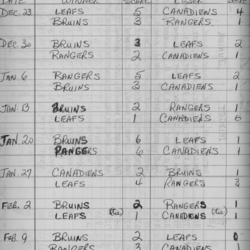 DATE WINNER SCORE LOSER SCORE
DEC. 23 LEAFS CANADIENS 4
BRUINS 3 RANGERS
DEC. 30 BRUINS 3 LEAFS 2
RANGERS 2 CANADIENS 1
JAN 6 RANGERS 5 LEAFS 2
BRUINS 3 CANADIENS 2
JAN 13 BRUINS 2 RANGERS
LEAFS 1 CANADIENS 6
JAN. 20 BRUINS 6 LEAFS
RANGERS 6 CANADIENS 1
JAN. 27 CANADIENS 2 BRUINS 1
LEAFS 4 RANGERS 3
FEB. 2 BRUINS 2 RANGERS 0
LEAFS 1 CANADIENS
FEB 9 BRUINS 2 LEAFS 0
RANGERS 3 CANADIENS